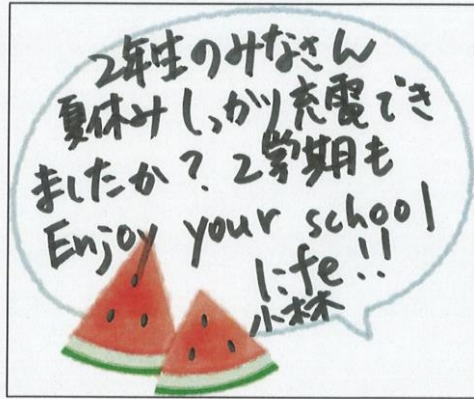 2年生のみなさん
夏休みしっかり充電でき
ましたか？2学期も
Enjoy your school
life!!
小林